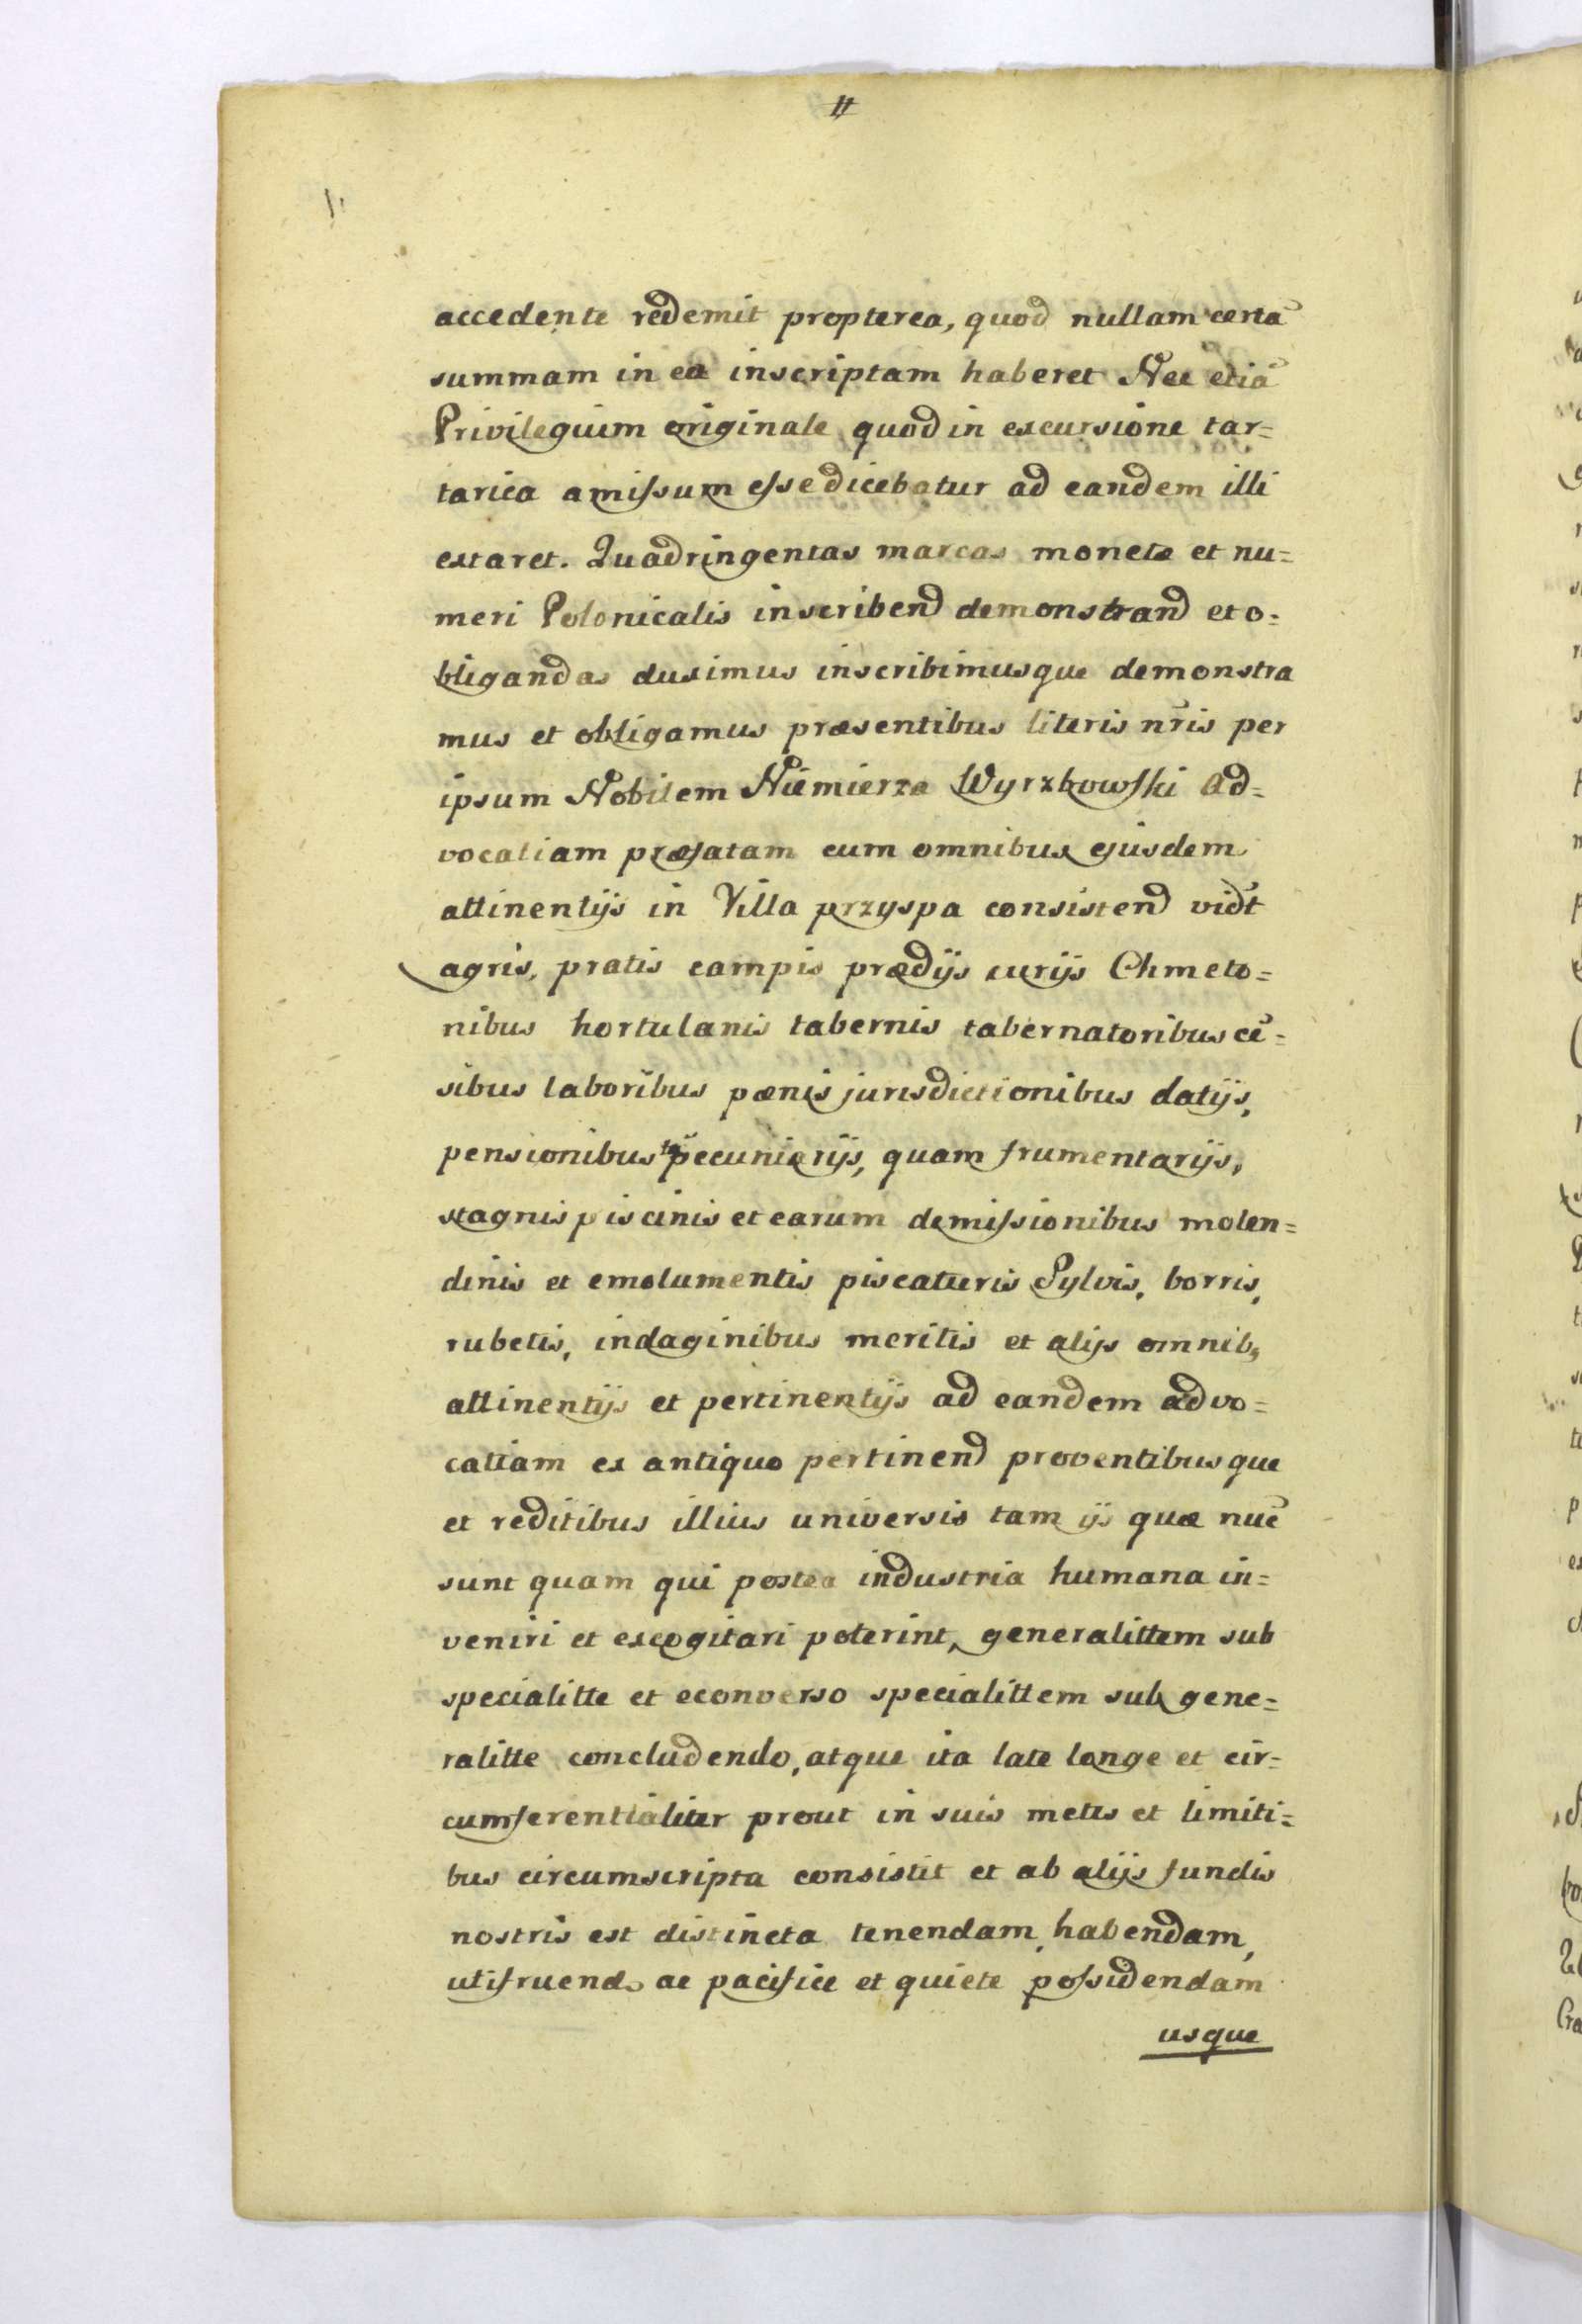 accedente redemit propterea, quod nullam certā
summam in ea inscriptam haberet Nec etiā
Privileguim originale quod in excursione tar=
tarica amiſsum eſse dicebatur ad eandem illi
extaret. Quadringentas marcas moneta et nu=
meri Polonicalis inscribend demonstrand et o=
bligandas duximus inscribimusque demonstra
mus et obligamus præsentibus literis nr̃is per
ipsum Nobilem Niemierza Wyrzbowſki Ad=
vocatiam præfatam cum omnibus ejusdem
attinentijs in Villa przyspa consistend vidt̃
agris, pratis campis prædijs curijs Chmeto=
nibus hortulanis tabernis tabernatoribus cē=
sibus laboribus pœnis jurisdictionibus datijs,
pensionibus tā pecuniarijs, quam frumentarijs,
stagnis piscinis et earum demiſsionibus molen=
dinis et emolumentis piscaturis Sylvis, borris,
rubetis, indaginibus meritis et alijs omnib,
attinentijs et pertinentijs ad eandem advo=
catiam ex antiquo pertinend proventibusque
et reditibus illius universis tam ijs quæ nuc̄
sunt quam qui postea industria humana in=
veniri et excogitari poterint, generalittem sub
specialitte et econverso specialittem sub gene=
ralitte concludendo, atque ita late longe et cir=
cumferentialiter prout in suis metis et limiti=
bus circumscripta consistit et ab alijs fundis
nostris est distincta tenendam, habendam,
utifruendo ac pacifice et quiete poſsidendam
usque